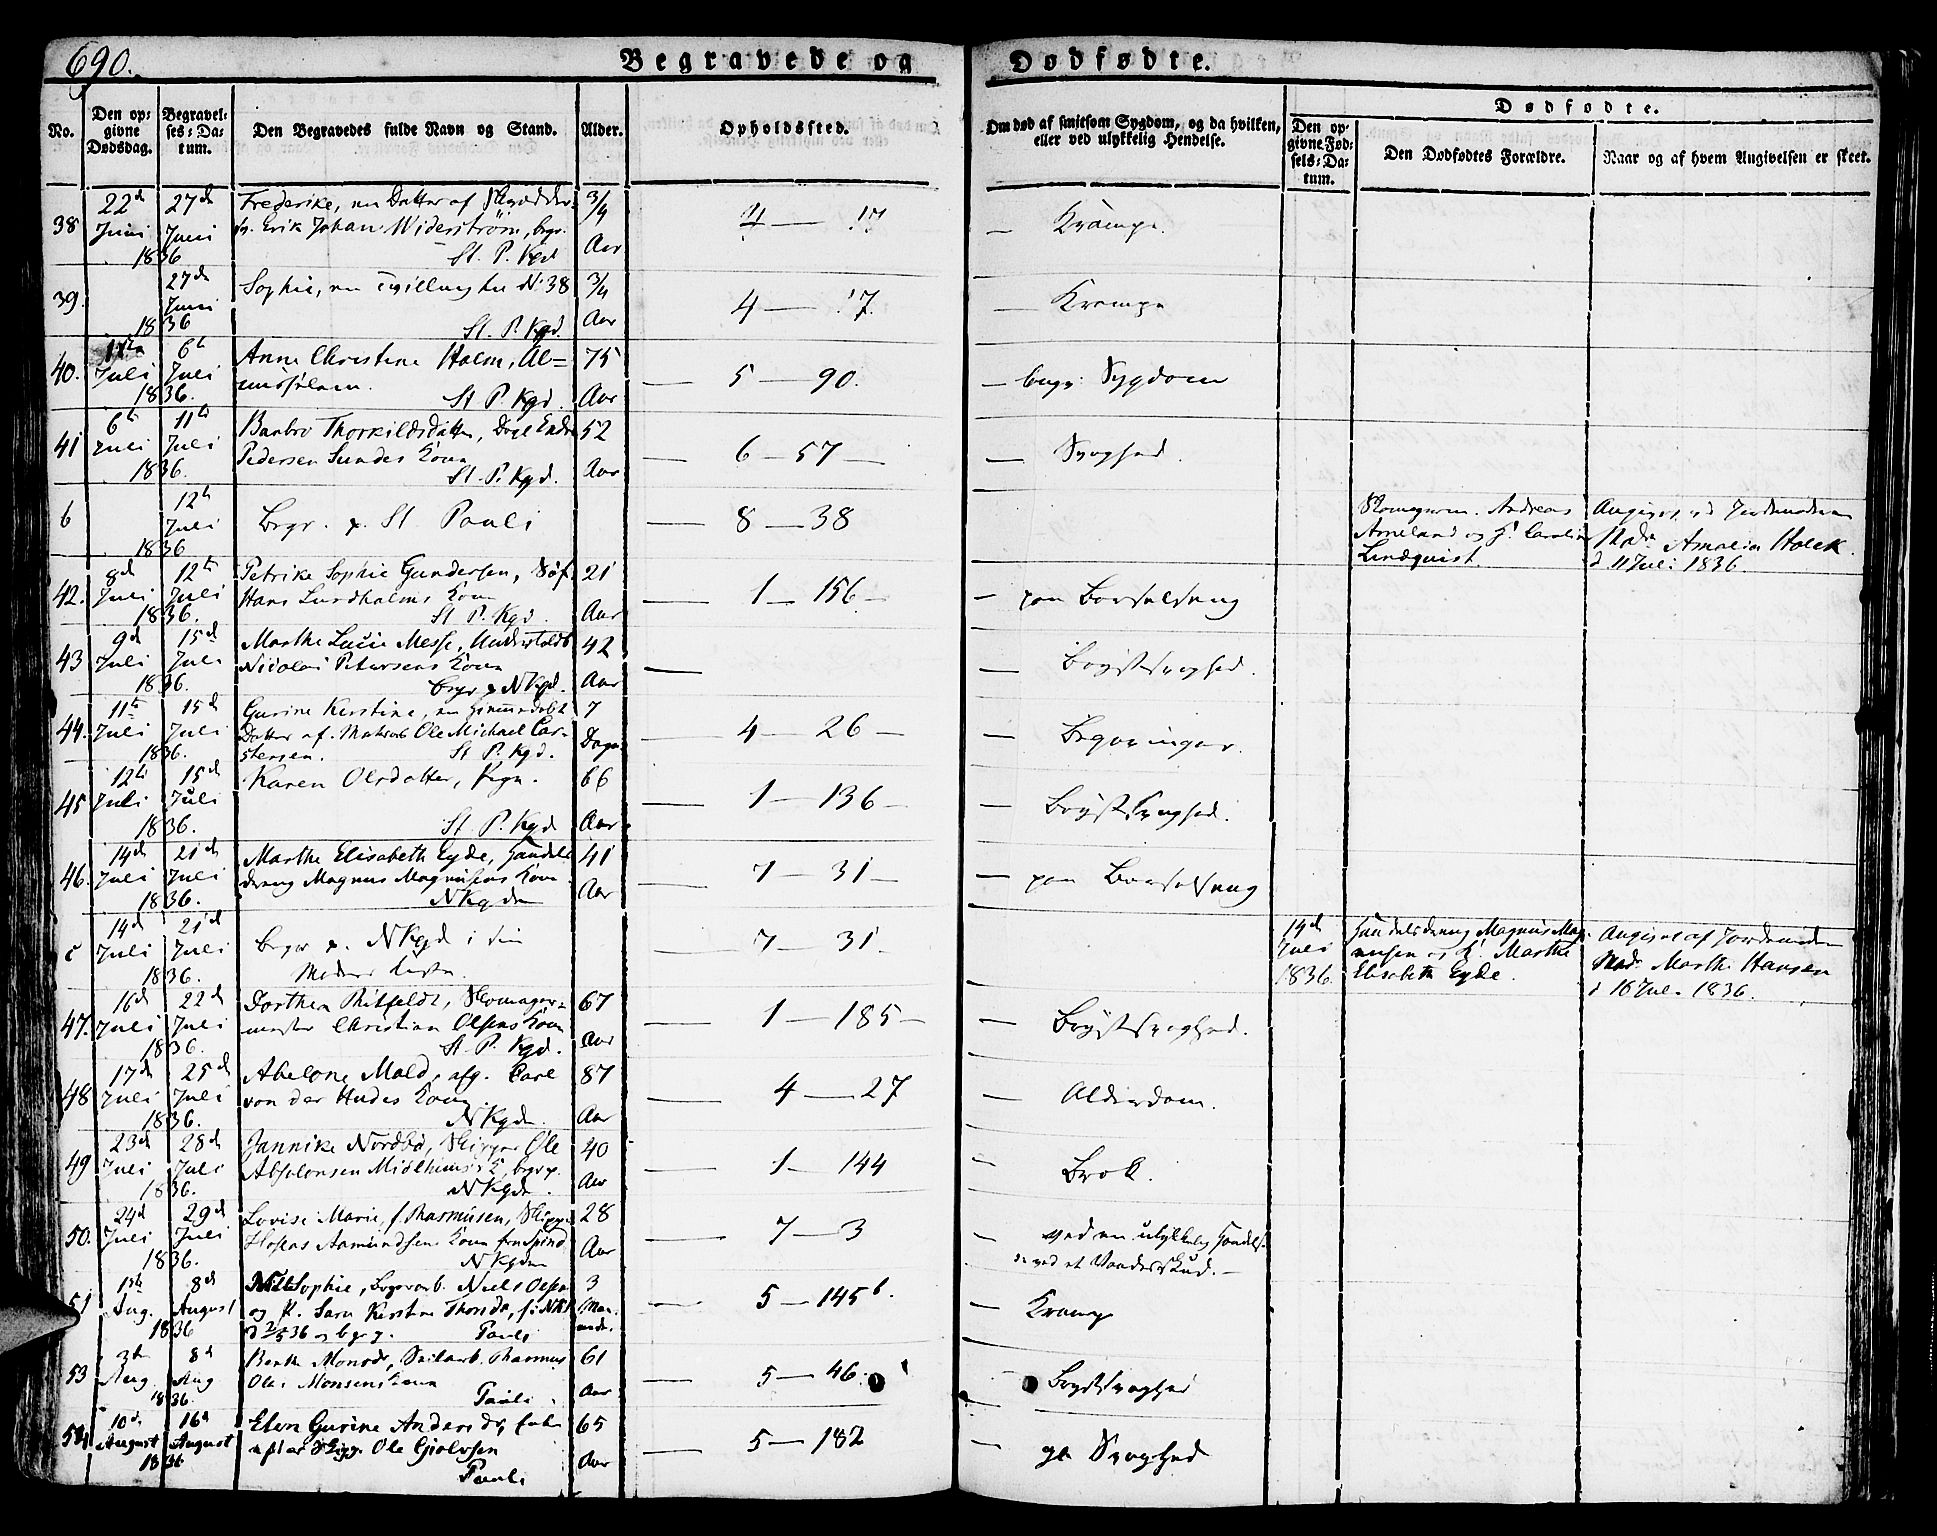 690.
Begravede og Dødfødte.
No.
Den opgivne Dødsdag.
Begravelses-Datum.
Den Begravedes fulde Navn og Stand.
Alder.
Opholdssted.
Om død af smitsom Sygdom, og da hvilken, eller ved ulykkelig Hendelse.
Dødfødte.
Den opgivne Fødsels-Datum.
Den Dødfødtes Forældre.
Naar og af hvem Angivelsen er skeet.
38 22d Juni 27d Juni 1836
Frederike, en Datter af
Erik Johan Widerstrøm, begr.
St. P. Kgd
3/4 Aar
4 — 17
— Krampe.
39. 27d Juni 1836
Sophie, en Tvilling til N. 38
St. P. Kgd.
3/4 Aar
4 — 17.
— Krampe
40. Juli 6te Juli 1836.
Anne Christine Holm, Al-
muslem.
St P. Kgd.
75 Aar
— 5 — 90.
— Sygdom
41 6te Juli 11te Juli 1836.
Barbro Thorkildsdatter, Endre
Pedersen Sundes Kone
St. P. Kgd.
52 Aar
— 6 — 57 —
— Svaghed.
6 12te Juli 1836
Begr. p. St Pauli
— 8 — 38
Andreas
Arneland og H. Caroline
Lindquist
Angivet ved Jordemoderen
Amalia Holck.
d 11 Juli 1836.
42. 8d Juli 12te Juli 1836.
Petrike Sophie Gundersen,
Hans Lundholms Kone
St P. Kgd.
21 Aar
— 1 — 156 —
— paa Barselseng
43 9d Juli 15d Juli 1836.
Marthe Lucie Messe,
Nicolai Petersens Kone
begr p N Kgd.
42 Aar
—
— Brystsvaghed.
44. 11te Juli 15d Juli 1836.
Gurine Kerstine, en hjemmedøbt
Datter af Ole Michael Car-
stensen. St P. Kgd.
7 Dage
— 4 — 26 —
— Begavninger.
45 12te Juli 15d Juli 1836.
Karen Olsdatter, Pige.
St P. Kgd
66 Aar
— 1 — 136 —
— Brystsvaghed.
46. 14d Juli 21d Juli 1836.
Marthe Elisabeth Eyde, Handels
dreng Magnus Magnusens Kone
N Kgden
41 Aar
— 7 — 31 —
— paa Barselseng
14d Juli 21d Juli 1836.
begr p. N Kgd i sin
Moders Kiste.
— 7 — 31.
14d Juli 1836.
Handelsdreng Magnus Mag-
nusen og H. Marthe
Elisabeth Eyde.
Angivet af Jordemoder
Mad. Marthe Hansen
d 16 Juli 1836.
47. 16d Juli 22d Juli 1836.
Dorthea Ritfeldt, Skomager-
mester Christian Olsens Kone
St. P. Kgd.
67 Aar
— 1 — 185 —
— Brystsvaghed.
48 17d Juli 25d Juli 1836.
Abelone Mald, afg. Carl
von der Hudes Kone
N Kgden.
87 Aar
— 4 — 27
— Alderdom.
49 23d Juli 28d Juli 1836.
Jannike Nordbø, Skipper Ole
Absolonsen K, begr p.
N Kgden.
40 Aar
— 1 — 144
— Brok.
50. 24d Juli 29d Juli 1836.
Lovise Marie, f. Rasmusen, Skipper
Hoseas Asmundsens Kone fra Spind
N Kgden
28 Aar
— 7 — 3
— ved en ulykkelig Hændelse
ved et Vaadeskud. —
51 Aug. 8d August 1836
Sophie, Niels Olsen
og H. Sara Kirstine
d 2/5 36 og begr p. Pauli
3 Maaneder
— 5 — 145b.
— Krampe
53 3die Aug. 8d Aug 1836.
Berthe Monsd., Rasmus
Olai Monsens Kone
Pauli.
61 Aar
— 5 — 46.
Brystsvaghed
54 10d. August 16d August 1836
Elen Gurine Andersd, Enke
efter Skipp. Ole Gjelvsen
Pauli
65 Aar
— 5 — 182
— Svaghed